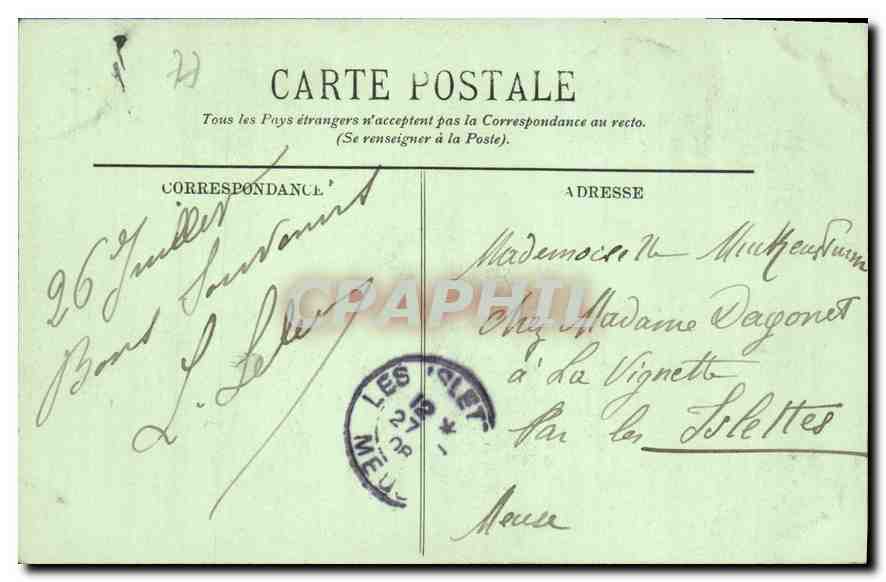 77
CARTE POSTALE
Tous les Pays étrangers n'acceptent pas la Correspondance au recto.
(Se renseigner à la Poste).
CORRESPONDANCE
26 Juillet
Bons Souvenirs
L.
ADRESSE
Mademoiselle
chez Madame Dagonet
à La Vignette
Par les Islettes
Meuse
LES ISLET
12 *
27
08
MEUS
CPAPHIL